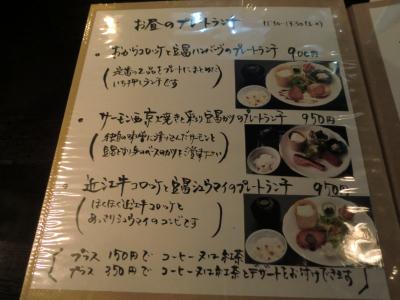 お昼のプレートランチ 11:30~14:30(L.O)
・おからコロッケと豆腐ハンバーグのプレートランチ 900円
(定番の2品をプレートにまとめた
いち押しランチです)
・サーモン西京焼きと彩り豆腐がんのプレートランチ 950円
(独自の味噌に漬け込んだサーモンと
・近江牛コロッケと豆腐シュウマイのプレートランチ 950円
(ほくほく近江牛コロッケと
あっさりシュウマイのコンビです)
プラス 150円で コーヒー又は紅茶
プラス 350円で コーヒー又は紅茶とデザートをお付けできます